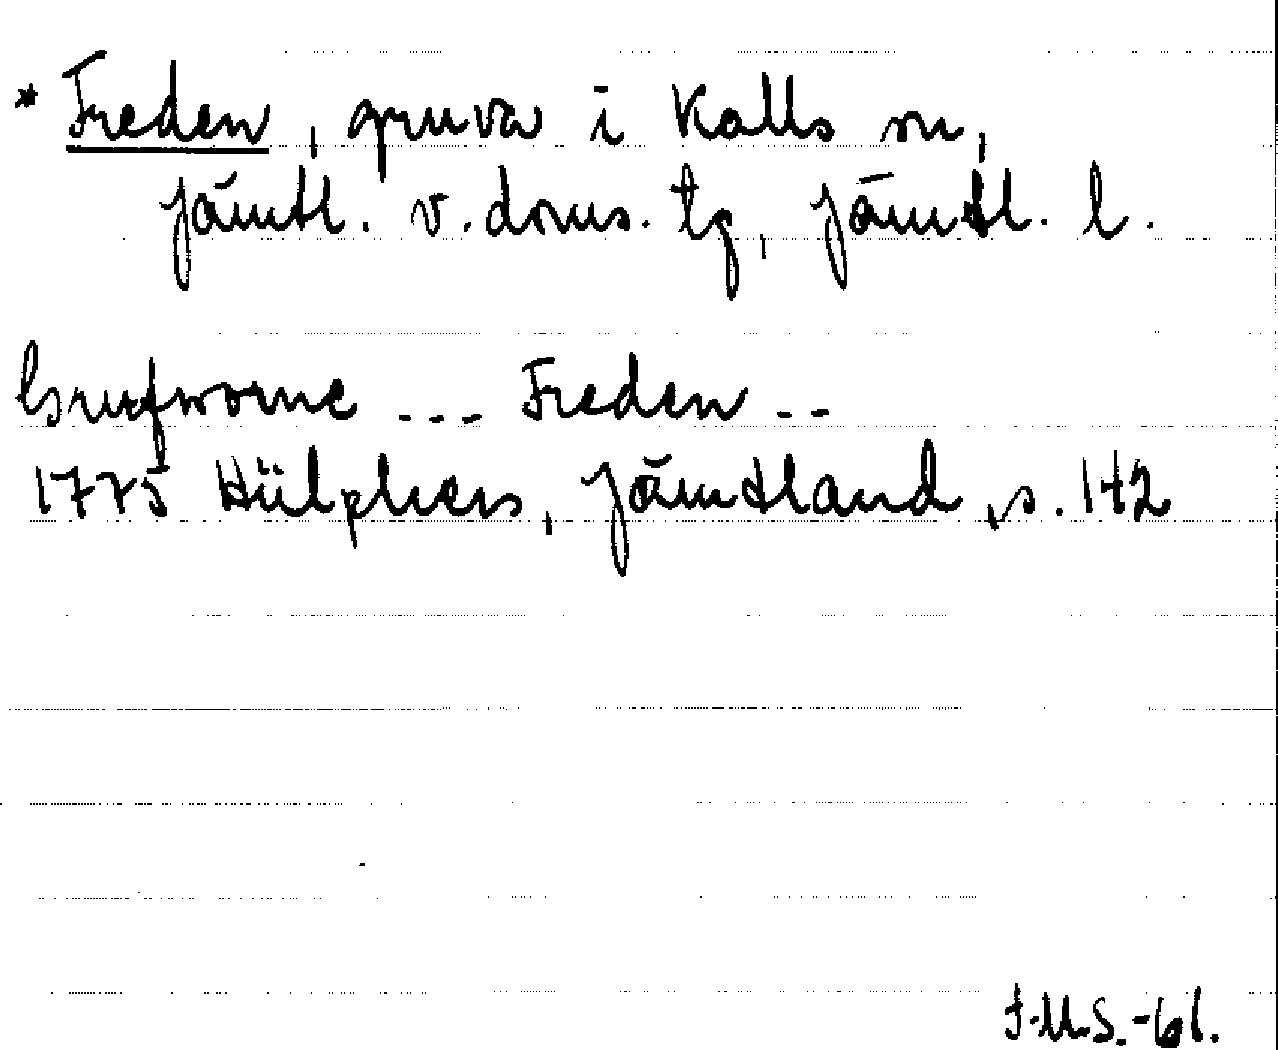 * Freden, gruva i Kalls sn,
Jämtl. v. doms. tg, Jämtl. l.
Grufworne --- Freden --
1775 Hülphers, Jämtland, s. 142
J.U.S.-61.